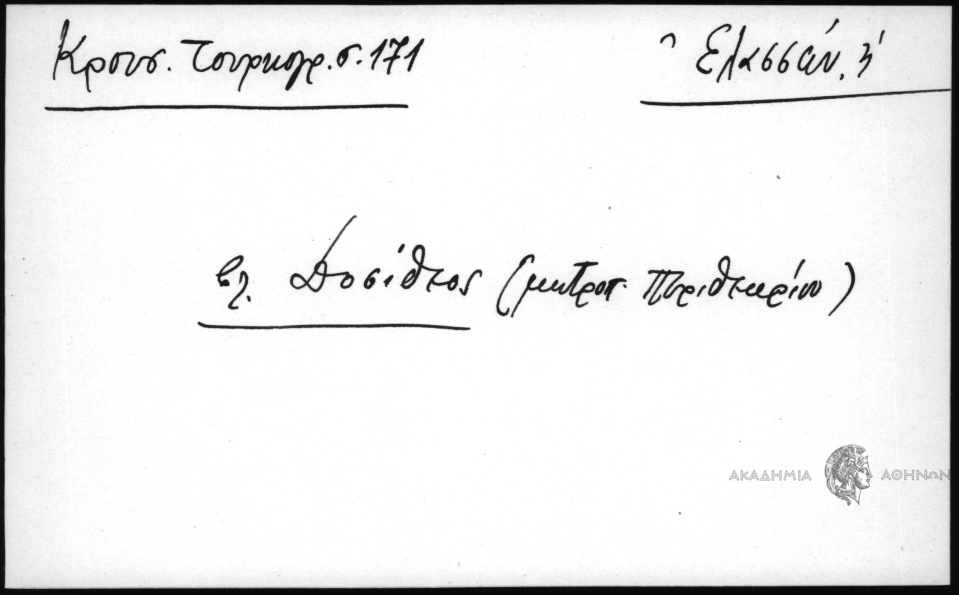 Κρους. Τουρκογρ. σ. 171
Ελασσών, ἡ
βλ. Δοσίθεος (μητροπ. Περιθεωρίου)
ΑΚΑΔΗΜΙΑ ΑΘΗΝΩΝ